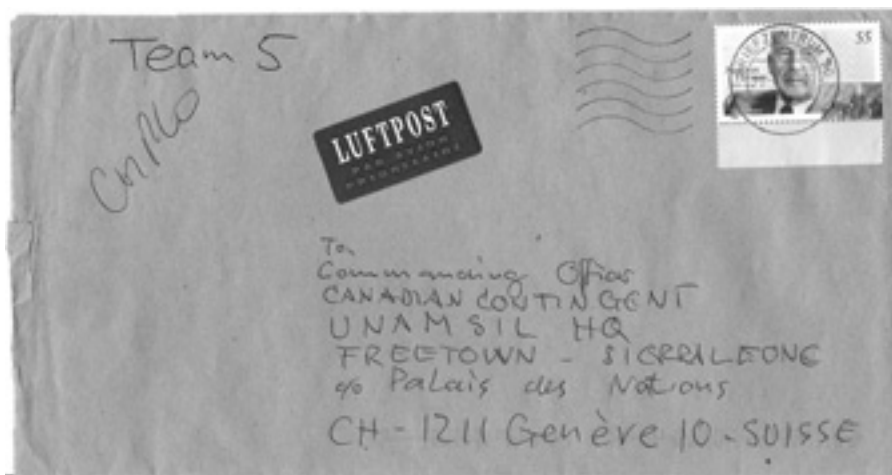 Team 5
55
LUFTPOST
PAR AVION
PRIORITAIRE
To
Commanding Officer
CANADIAN CONTINGENT
UNAMSIL HQ
FREETOWN - SIERRALEONE
c/o Palais des Nations
CH-1211 Genève 10-SUISSE